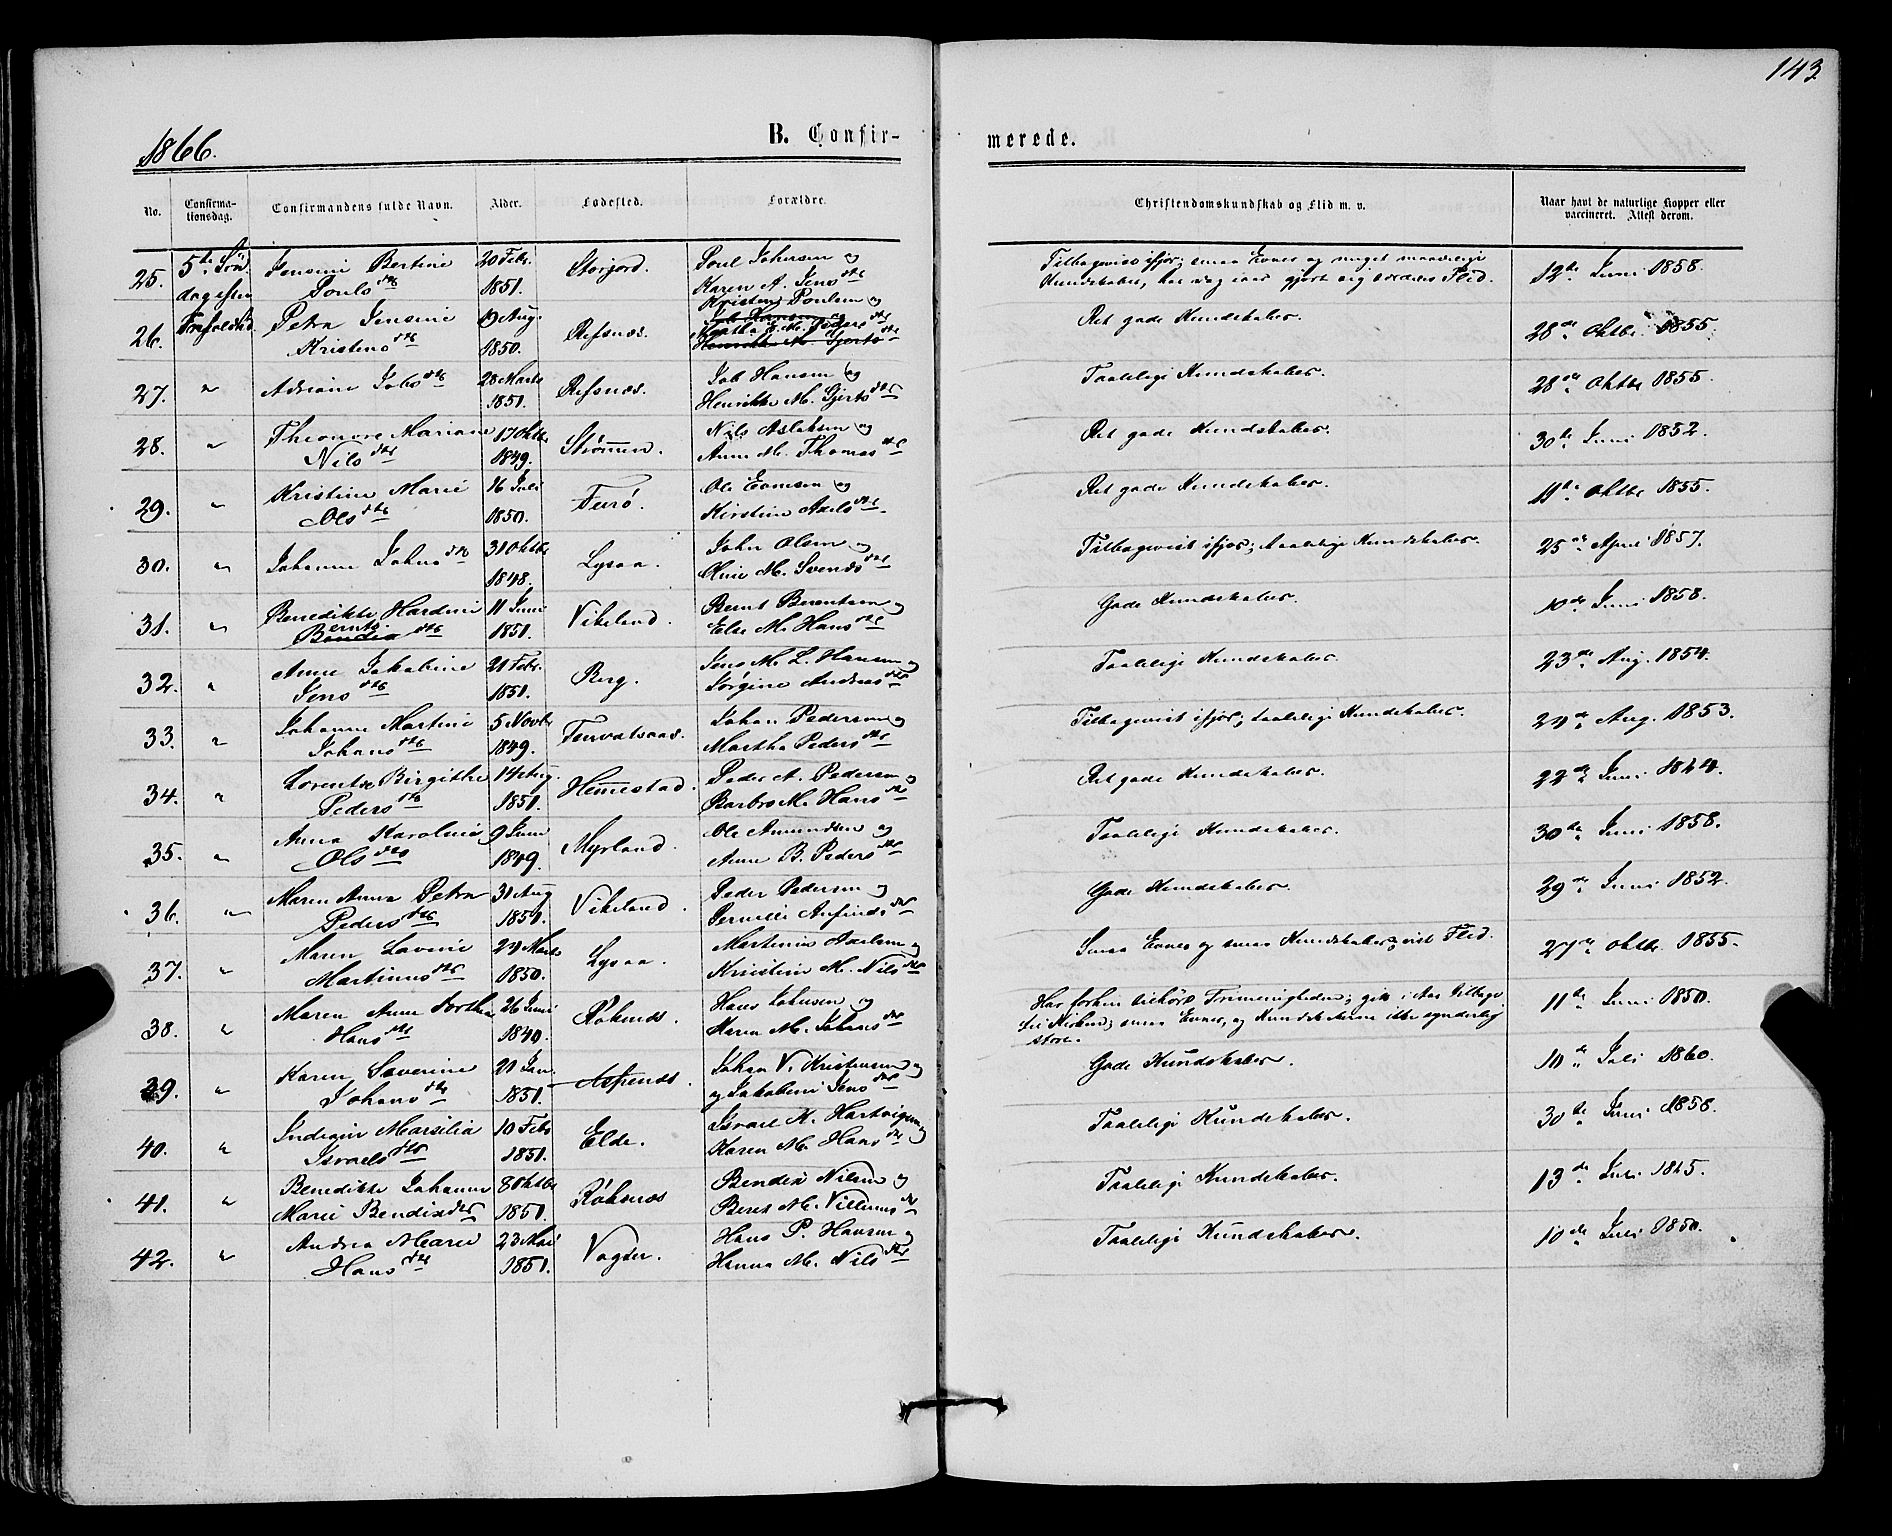 143
1866.
B. Confir-
merede.
No.
Confirma-
tionsdag.
Confirmandens fulde Navn.
Alder.
Fødested.
Forældre.
Christendomskundskab og Flid m. v.
Naar havt de naturlige Kopper eller
vaccineret. Attest derom.
25. 5te Søn- Jensine Bertine 20 Febr. Storjord. Poul Johnsen og
dag efter Pouls dtr 1851. Karen A. Jens dtr
Tilbagevist ifjor; smaa Evner og meget maadelige
Kundskaber, har dog iaar gjort sig Flid. 12te Juni 1858.
26. Trefoldighd. Petra Jensine 19 Aug. Refsnæs. Kristen Poulsen og
Kristens dtr 1850. Martha E. M. Peders dtr
Ret gode Kundskaber. 28de Oktbr 1855.
27. " Adriane Jobs dtr 28 Marts Refsnæs. Job Hansen og
1851. Henrikke M. Gjerts dtr
Taalelige Kundskaber. 28de Oktbr 1855.
28. " Theonore Mariane 17 Oktbr Strømmen. Nils Aslaksen og
Nils dtr 1849. Anne M. Thomas dtr
Ret gode Kundskaber. 30te Juni 1852.
29. " Kristine Marie 16 Juli Furø. Ole Evensen og
Ols dtr 1850. Kirstine Axels dtr
Ret gode Kundskaber. 11te Oktbr 1855.
30. " Johanne Johns dtr 31 Oktbr Lysaa. John Olsen og
1848. Oline M. Svends dtr
Tilbagevist ifjor; taalelige Kundskaber. 25de April 1857.
31. " Benedikte Hardine 11 Juni Vikeland. Bernt Berentsen og
Bernts dtr 1851. Else M. Hans dtr
Gode Kundskaber. 10de Juni 1858.
32. " Anne Jakobine 21 Febr. Berg. Jens M. L. Hansen og
Jens dtr 1851. Jørgine Andreas dtr
Taalelige Kundskaber. 23de Aug. 1854.
33. " Johanne Martine 5 Novbr Johan Pedersen og
Johans dtr 1849. Martha Peders dtr
Tilbagevist ifjor; taalelige Kundskaber. Aug. 1853.
34. " Lorentze Birgithe 14 Aug. Hemestad. Peder A. Pedersen og
Peders dtr 1851. Barbro M. Hans dtr
Ret gode Kundskaber. 22de Juni
35. " Anna Karoline 9 Juni Myrland. Ole Amundsen og
Ols dtr 1849. Anne B. Peders dtr
Taalelige Kundskaber. 30te Juni 1858.
36. " Maren Anna Petra 31 Aug Vikeland. Peder Pedersen og
Peders dtr 1851. Pernille Anfinds dtr
Gode Kundskaber. 29de Juni 1852.
37. " Maren Lavine Marts Lysaa. Martinus Axelsen og
Martinus dtr 1850. Kristine M. Nils dtr
Smaa Evner og smaa Kundskaber; vist Flid. 27de Oktbr 1855.
38. " Maren Anne Dorthea 26 Juni Røknæs. Hans Johnsen og
Hans dtr 1849. Karen M. Johans dtr
Har forhen tilhørt Frimenigheden; gik i Aar tilbage
til Kirken; smaa Evner, og Kundskaberne ikke synderlig
store. 11te Juni 1850.
39. " Karen Severine 21 Jan. Aspenæs. Johan V. Kristensen og
Johans dtr 1851. og Jakobine Jens dtr
Gode Kundskaber. 10de Juli 1860.
40. " Marsilia 10 Febr Elde. Israel K. Hartvigsen og
Israels dtr 1851. Karen M. Hans dtr
Taalelige Kundskaber. 30te Juni 1858.
41. " Benedikte Johanne 8 Oktbr Røknæs Bendix Nilsen og
Marie Bendix dtr 1850. Beret M. Villums dtr
Taalelige Kundskaber. 13de Juli
42. " Andrea Marie 23 Mai Vogter. Hans P. Hansen og
Hans dtr 1851. Hanna M. Nils dtr
Taalelige Kundskaber. 10de Juli 1850.